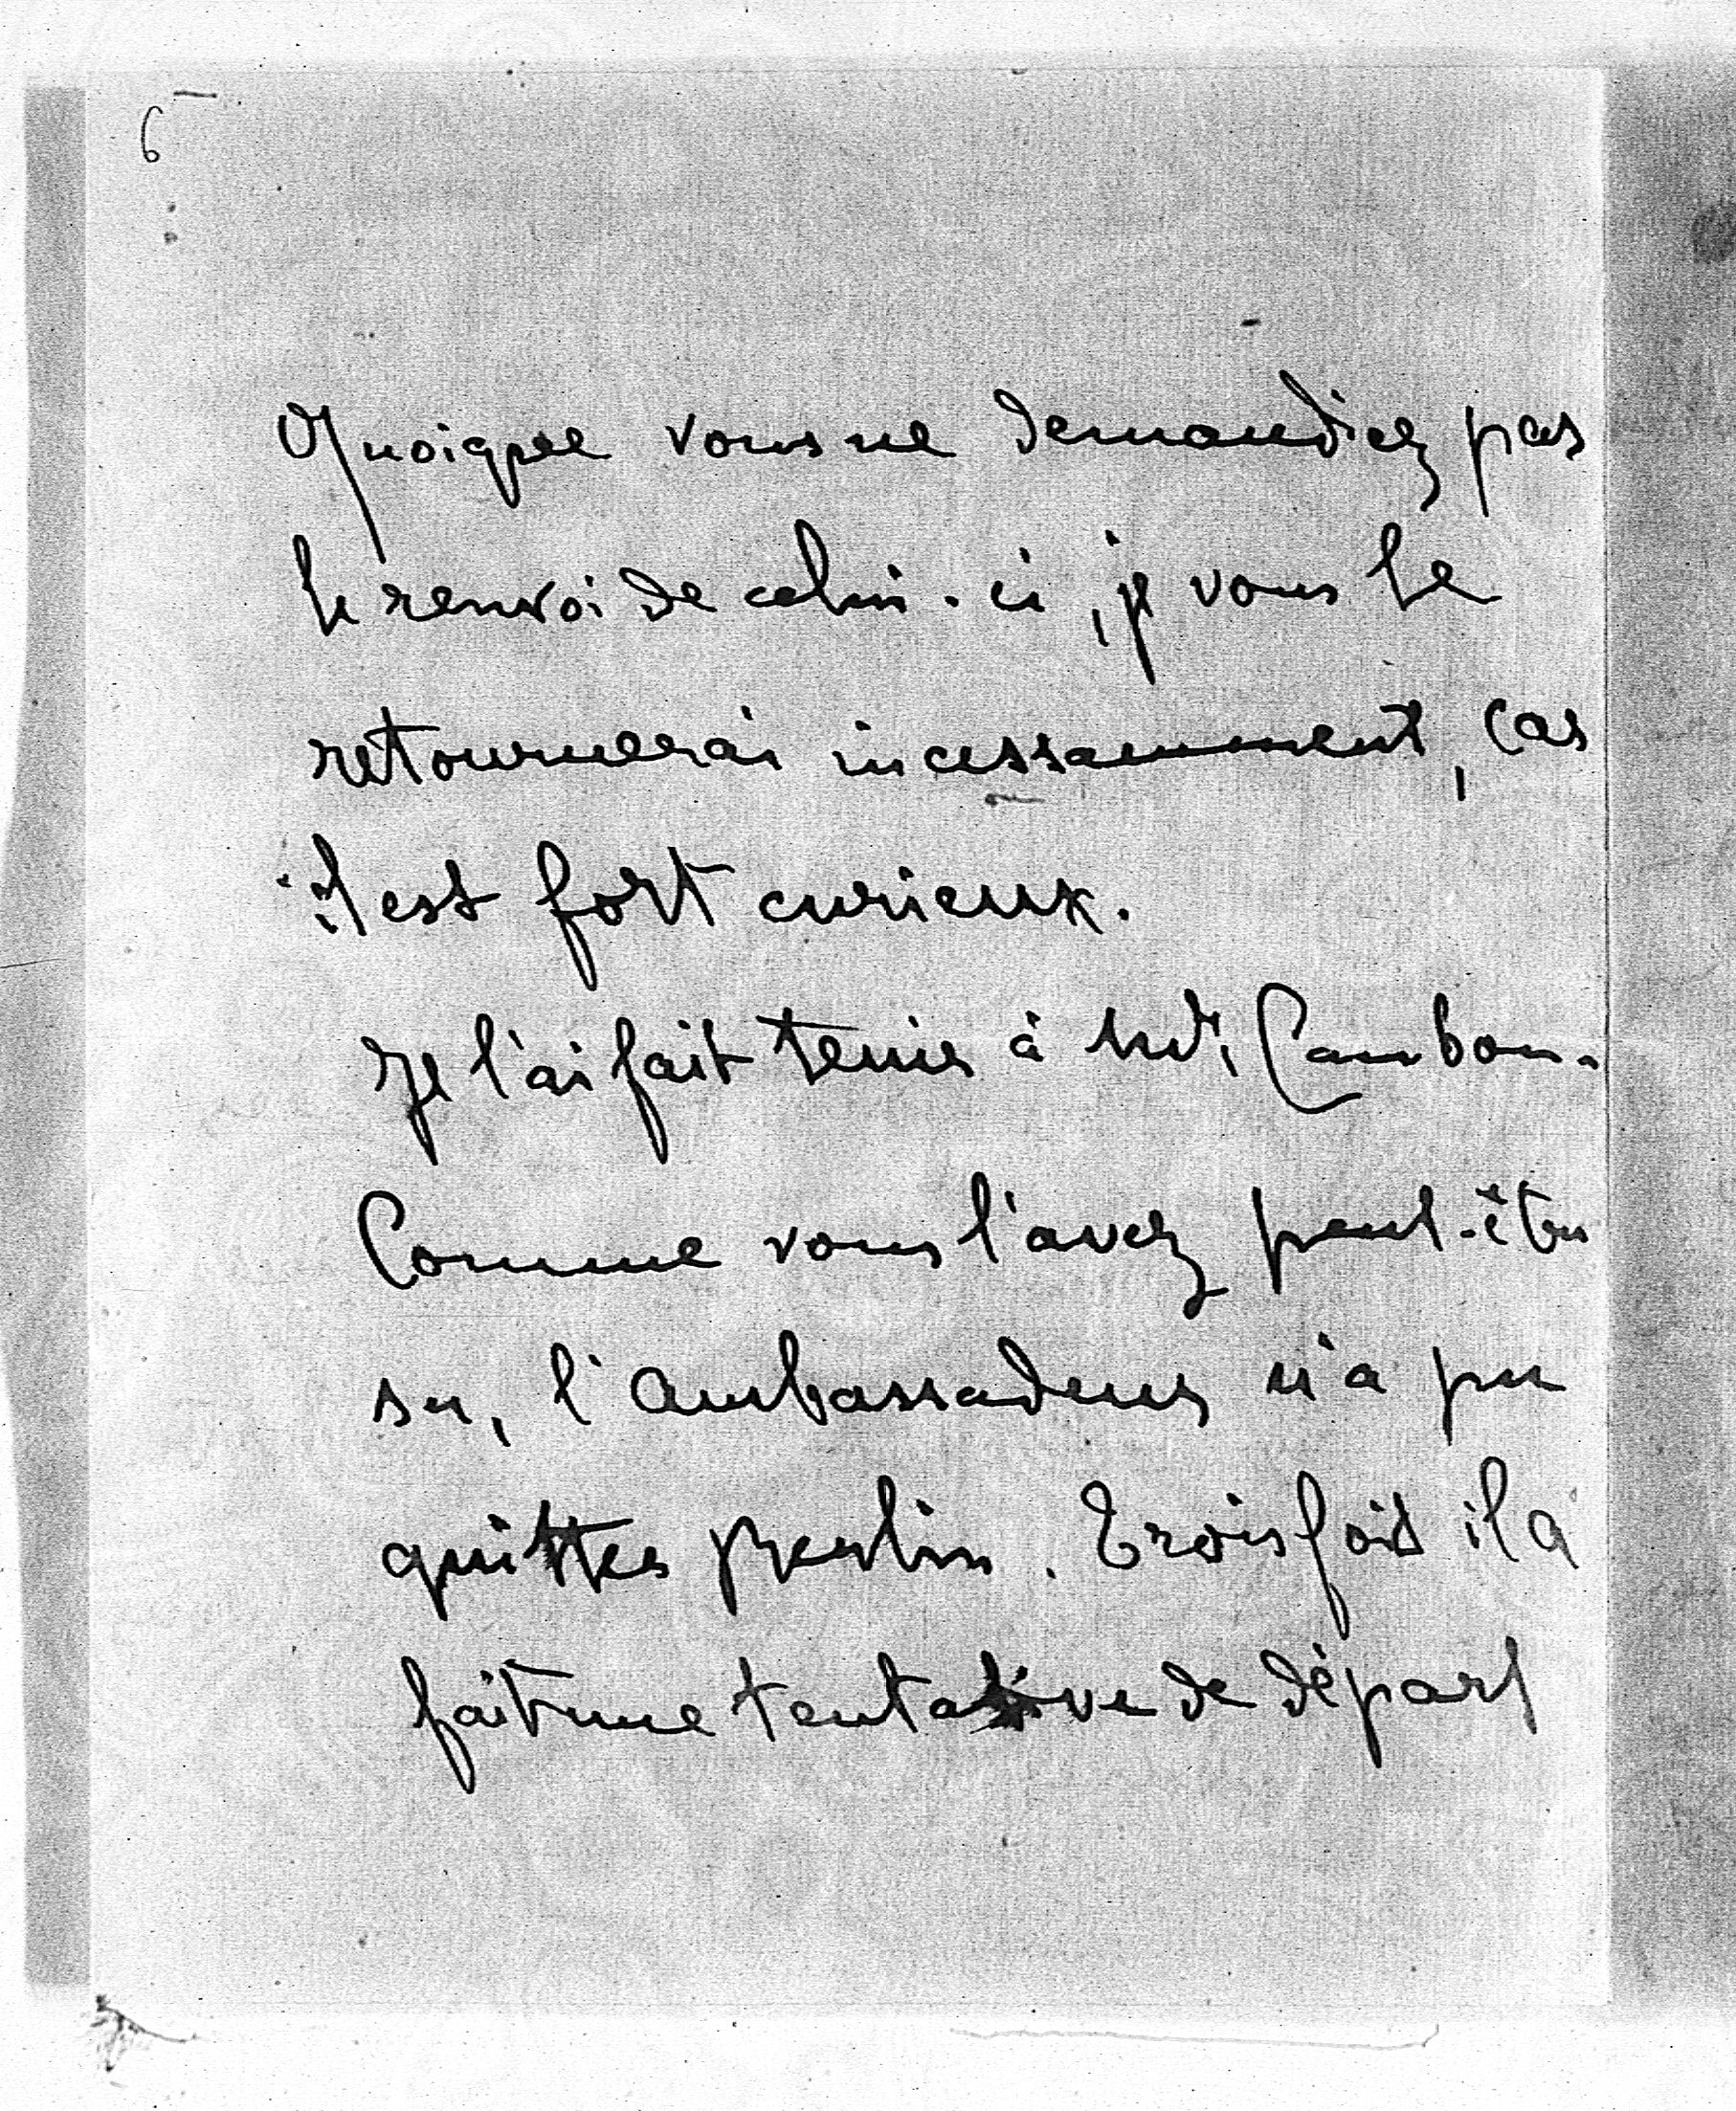 6
Quoique vous ne demandiez pas
le renvoi de celui-ci, je vous le
retournerai incessamment, car
il est fort curieux.
Je l'ai fait tenir à Mr. Cambon.
Comme vous l'avez peut-être
su, l'Ambassadeur n'a pu
quitter Berlin. Trois fois il a
fait une tentative de départ